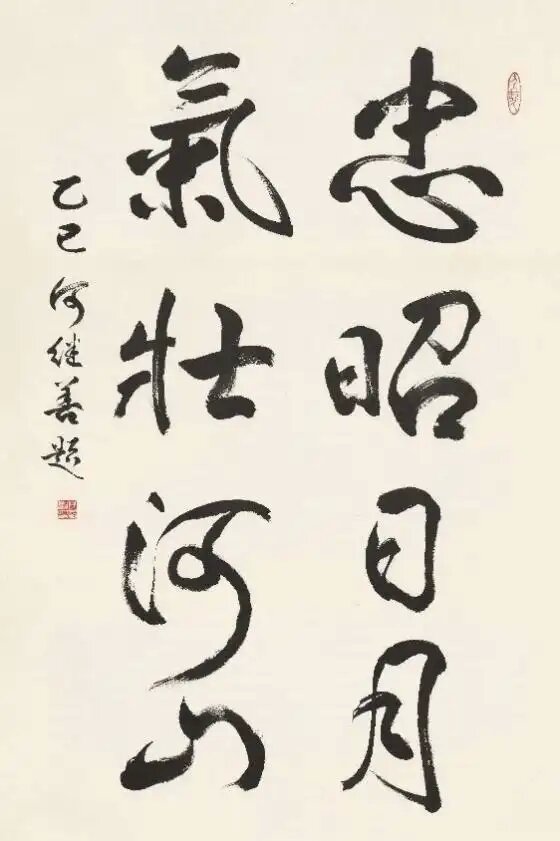 忠昭日月
氣壯河山
乙巳何继善题